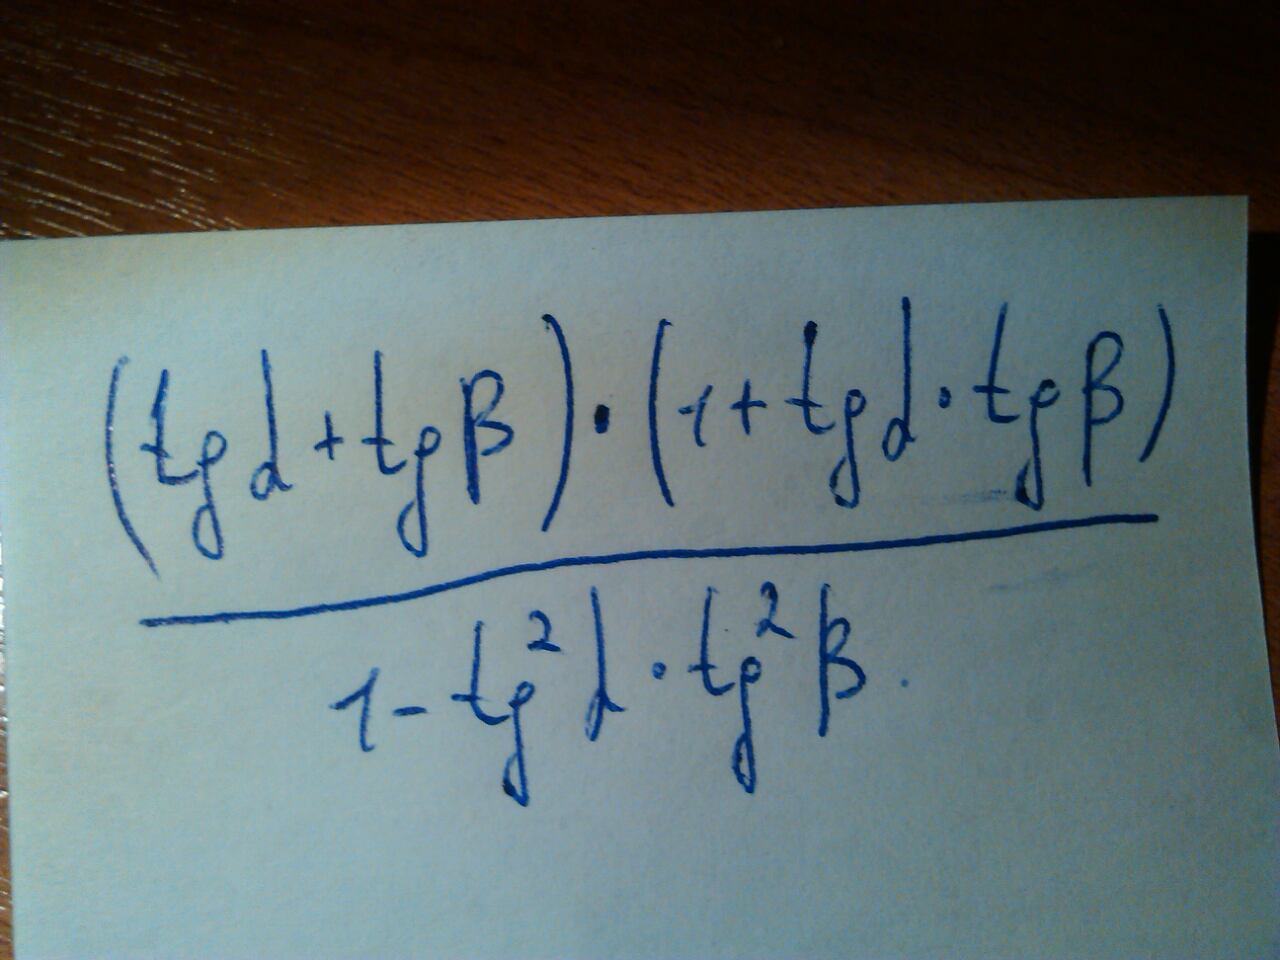 (tg α + tg β) · (1 + tg α · tg β)
1 - tg² α · tg² β.